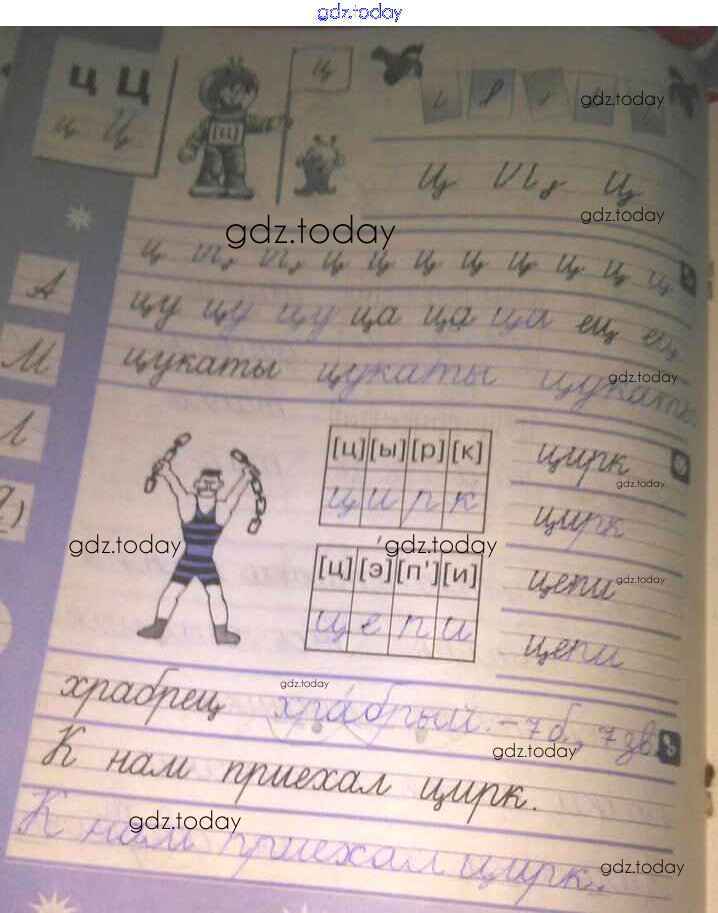 gdz.today
ц Ц
ц Ц
[ц]
ц
gdz.today
ц
gdz.today
gdz.today
ц ц ц ц ц ц ц ц
А
цу цу цу ца ца ца ец ец
М
цукаты цукаты цукаты
gdz.today
Л
[ц] [ы] [р] [к]
цирк
цирк
gdz.today
цирк
gdz.today
gdz.today
[ц] [э] [п'] [и]
цепи
цепи
gdz.today
цепи
gdz.today
храбрец храбрый. - 7 б., 7 зв.
gdz.today
К нам приехал цирк.
gdz.today
К нам приехал цирк.
gdz.today